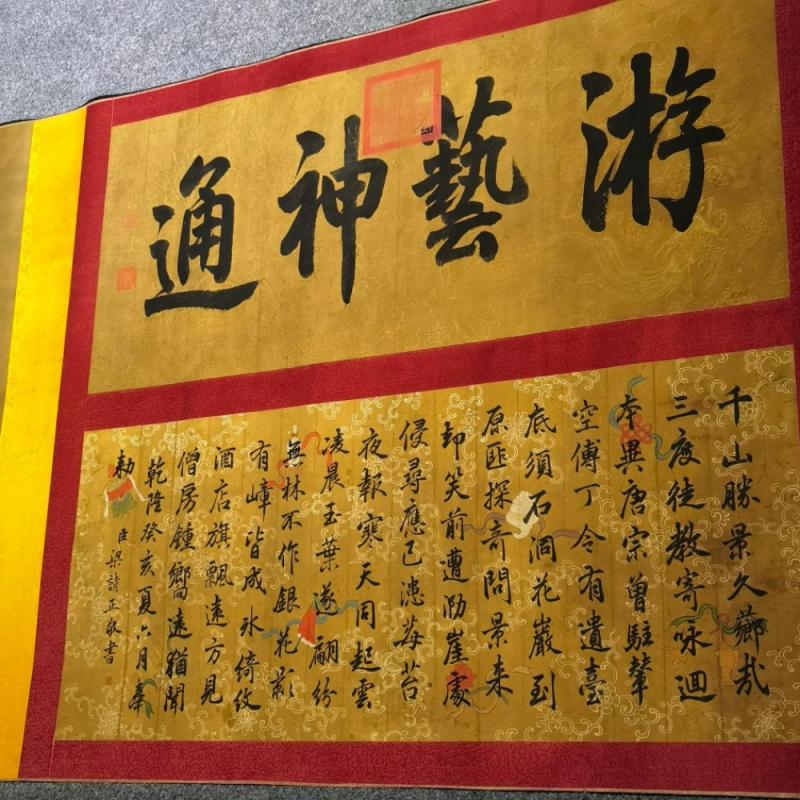 游藝神通
千山勝景久薌㢤
三度徒教寄咏迴
本異唐宗曾駐輦
空傳丁令有遺臺
底須石洞花巖到
原匪探奇問景来
却笑前遭泐崖處
侵尋應已漶莓苔
夜報寒天同起雲
凌晨玉葉遂翩紛
無林不作銀花影
有嶂皆成氷綺紋
酒店旗飄遠方見
僧房鍾嚮遠猶聞
乾隆癸亥夏六月奉
勅
臣梁詩正敬書